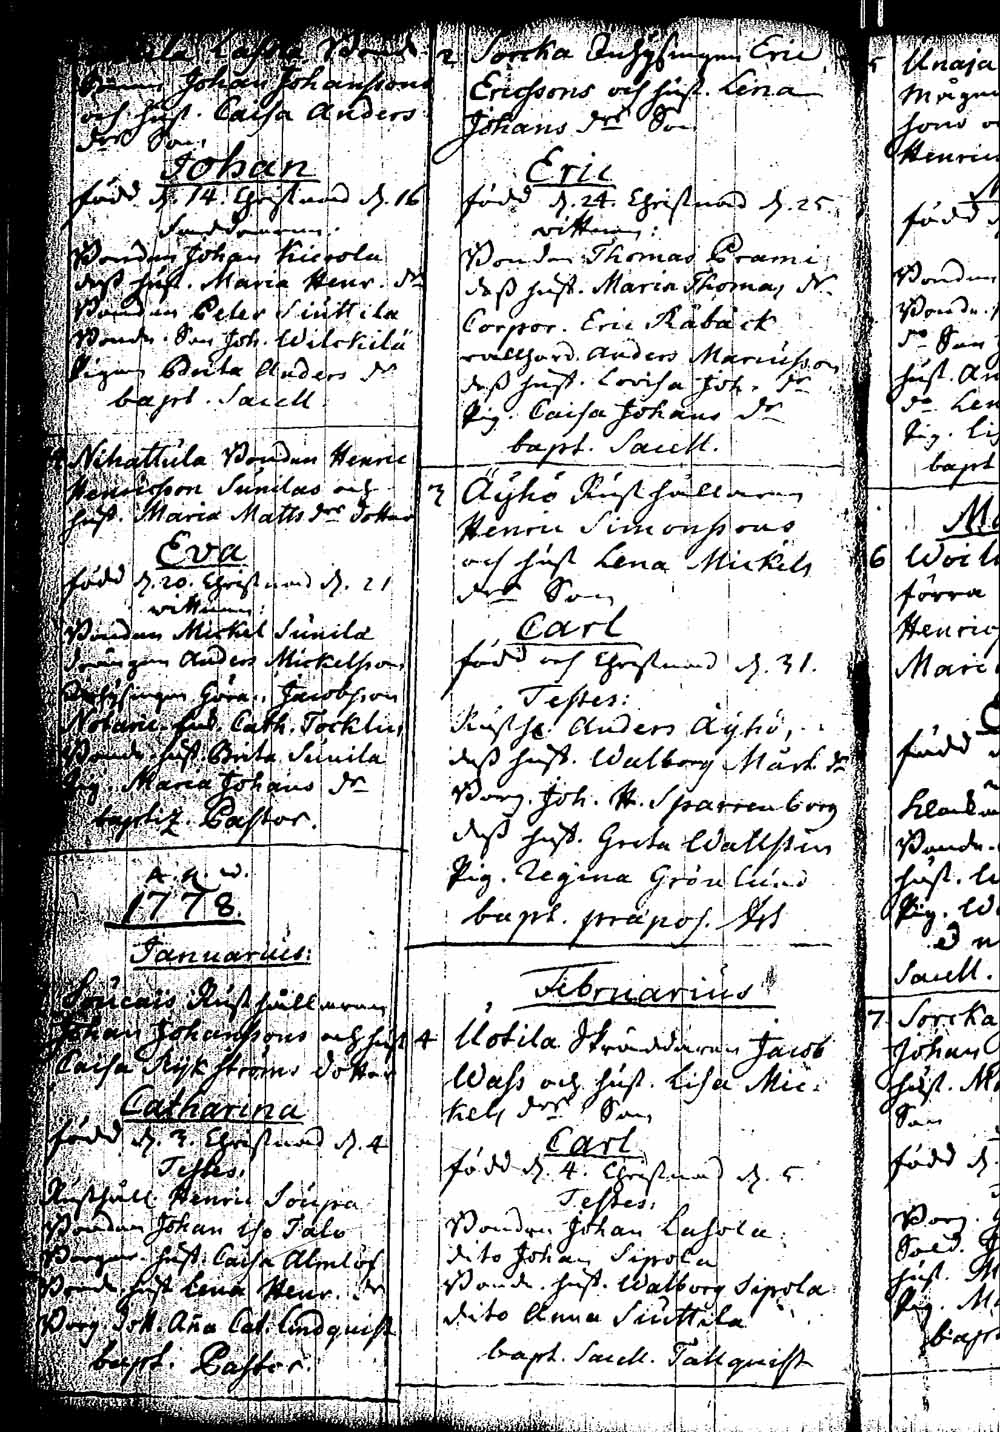 Lassila Bond-
Sonens Johan Johanssons
och hust. Caisa Anders
dr Son
Johan
född d. 14. Christnad d. 16
Faddrarne:
Bonden Johan Kierola
dess hust. Maria Henr. dr
Bonden Peter Siuttila
Bonde. Son Joh. Wilckilä
Pigan Brita Anders dr
bapt. Sacell.
Nihattula Bonden Henric
Henricsson Sunilas och
hust. Maria Matts drs dotter
Eva
född d. 20. Christnad d. 21
wittnen:
Bonden Mickel Sunila
Drängen Anders Mickelsson
Inhysingen Göran Jacobsson
Notarii hust. Cath. Tocklin
Bonde hust. Brita Sunila
Pig. Maria Johans dr
baptiz. Pastor.
A. n. w.
1778.
Januarius:
Soucais Rusthållaren
Johan Johanssons och hust
Caisa Rykströms dotter
Catharina
född d. 3. Christnad d. 4
Testes:
Rusthåll. Henric Soupa
Bonden Johan Iso Talo
Borgar. hust. Caisa Almlöf
Bonde. hust Lena Henr. dr
Borg. dott. Aña Cat. Lindquist
bapt. Pastor
2 Sorcka Inhysingen Eric
Ericssons och hust. Lena
Johans drs Son
Eric
född d. 24. Christnad d. 25
wittnen:
Bonden Thomas Prami
dess hust. Maria Thomas dr.
Corpor. Eric Råback
vallhord. Anders Marcusson
dess hust. Lovisa Joh. dr
Pig. Caisa Johans dr
bapt. Sacell.
3 Äyhö Rusthållaren
Henric Simonssons
och hust Lena Mickels
drs Son
Carl
född och Christnad d. 31.
Testes:
Rusth. Anders Äyhö,
dess hust. Walborg Mårt. dr
Borg. Joh. H. Sparrenborg
dess hust. Greta Wallssen
Pig. Regina Grönlund
bapt. præpos.
Februarius
4 Uotila Skräddaren Jacob
Wass och hust. Lisa Mic-
kels drs Son
Carl
född d. 4. Christnad d. 5.
Testes:
Bonden Johan Lassola
dito Johan Sipola
Bonde. hust. Walborg Sipola
dito Anna Siuttila
bapt. Sacell. Tallquist
5 Unaja
Mågen
hono
Henric
född
Bonden
Bonde.
dr Son
hust. An
dr Len
Pig. Lis
bapt
Ma
6 Woil
förra
Henric
Mari
född
Bonde.
hust.
Pig. W
Sacell.
7 Sorcka
Johan
hust. M
Son
född d.
Borg.
Sold.
hust. M
Pig. M
bapt